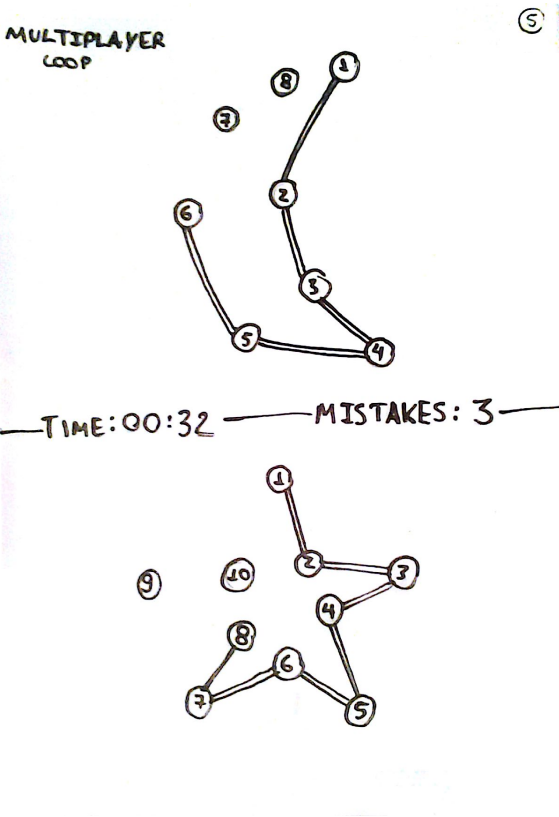 5
MULTIPLAYER
LOOP
1
8
7
2
6
3
5
4
TIME: 00:32
MISTAKES: 3
1
2
3
9
10
4
8
6
7
5